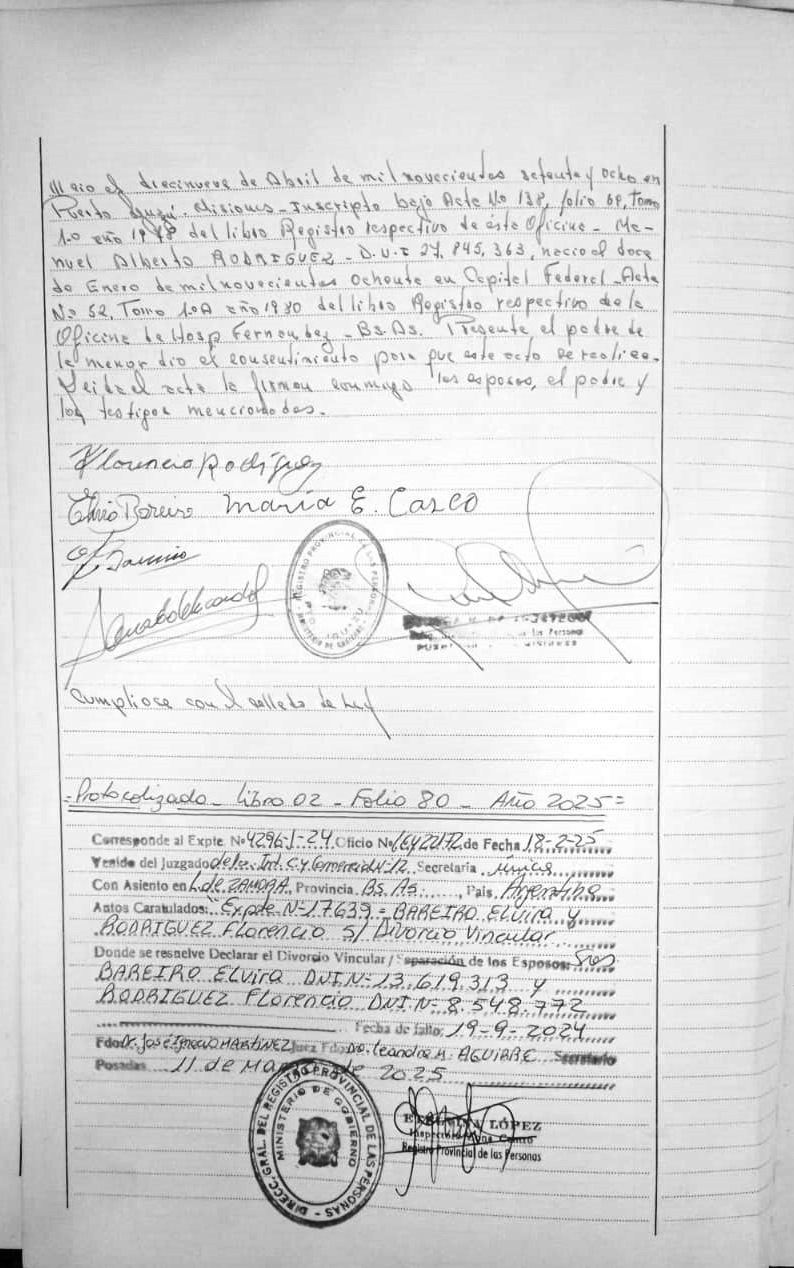 nacio el diecinueve de Abril de mil novecientos setenta y ocho en
Puerto Iguazú. Misiones - Inscripto bajo Acte No 138, folio 69, Tomo
1.o año 1978 del libro Registro respectivo de éste Oficine - Ma-
nuel Alberto RODRIGUEZ - D.U.I 27.845.363, nacio el doce
de Enero de mil novecientos Ochente en Capitel Federel - Acte
No 52, Tomo 1.oA año 1980 del libro Registro respectivo de le
Oficine de Hosp Fernandez - Bs. As. Presente el padre de
le menor dio el consentimiento para que este acto se realice.
Leida el acta la firman conmigo los esposos, el padre y
los testigos mencionados.
Florencio Rodriguez
Elvira Bareiro Maria E. Casco
REGISTRO PROVINCIAL DE LAS PERSONAS
de las Personas
Cumpliose con el sellado de Ley
=Protocolizado - Libro 02 - Folio 80 - Año 2025=
Corresponde al Expte. Nº 4296-I-24 Oficio Nº LEY 22172 de Fecha 18-2-25
Venido del Juzgado de 1ra. Int. C. y Comercial Nº 12 Secretaría única
Con Asiento en L. de ZAMORA, Provincia Bs. As. , País Argentina
Autos Caratulados: "Expte Nº 17639 = BAREIRO ELvira y
RODRIGUEZ Florencio S/ Divorcio Vincular
Donde se resuelve Declarar el Divorcio Vincular / Separación de los Esposos: Sres
BAREIRO ELvira DNI Nº 13.619.313 y
RODRIGUEZ Florencio DNI Nº 8.548.772
Fecha de fallo: 19-9-2024
Fdo Dr. José Ignacio MARTINEZ Juez Fdo Dr. Leandro M. AGUIRRE Secretario
Posadas 11 de Marzo de 2025
DIRECC. GRAL. DEL REGISTRO PROVINCIAL DE LAS PERSONAS
MINISTERIO DE GOBIERNO
LÓPEZ
Registro Provincial de las Personas